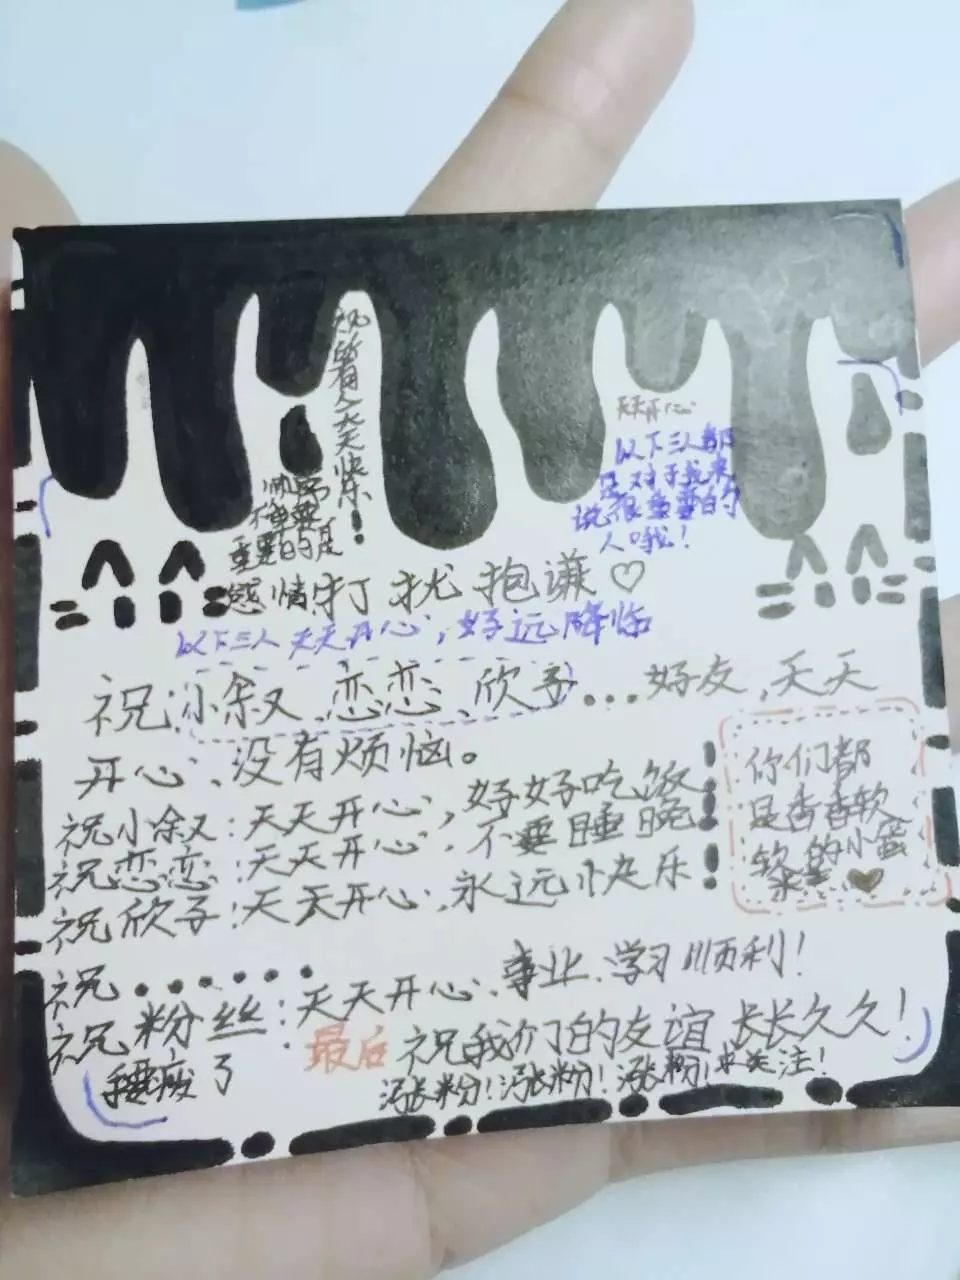 祝所有人天天快乐！
天天开心
以下三人都
是对于我来
说很重要的
人哦！
顺序
不重要
重要的是
感情
打扰抱谦♡
以下三人天天开心，好运降临
祝：小叙、恋恋、欣予...好友，天天
开心、没有烦恼。
祝小叙：天天开心，好好吃饭！
祝恋恋：天天开心，不要睡晚！
祝欣予：天天开心，永远快乐！
你们都
是香香软
软的小蛋
糕♥
祝......
祝粉丝：天天开心、事业、学习顺利！
手要废了
最后 祝我们的友谊长长久久！
涨粉！涨粉！涨粉！求关注！